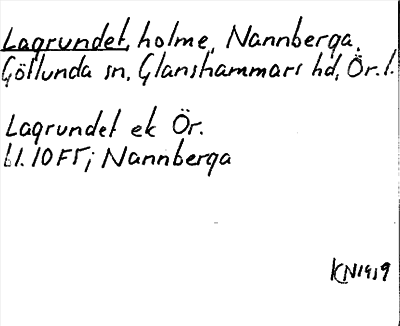 Lagrundet, holme, Nannberga,
Götlunda sn, Glanshammars hd, Ör. l.
Lagrundet ek Ör.
bl. 10 FT; Nannberga
KN1919